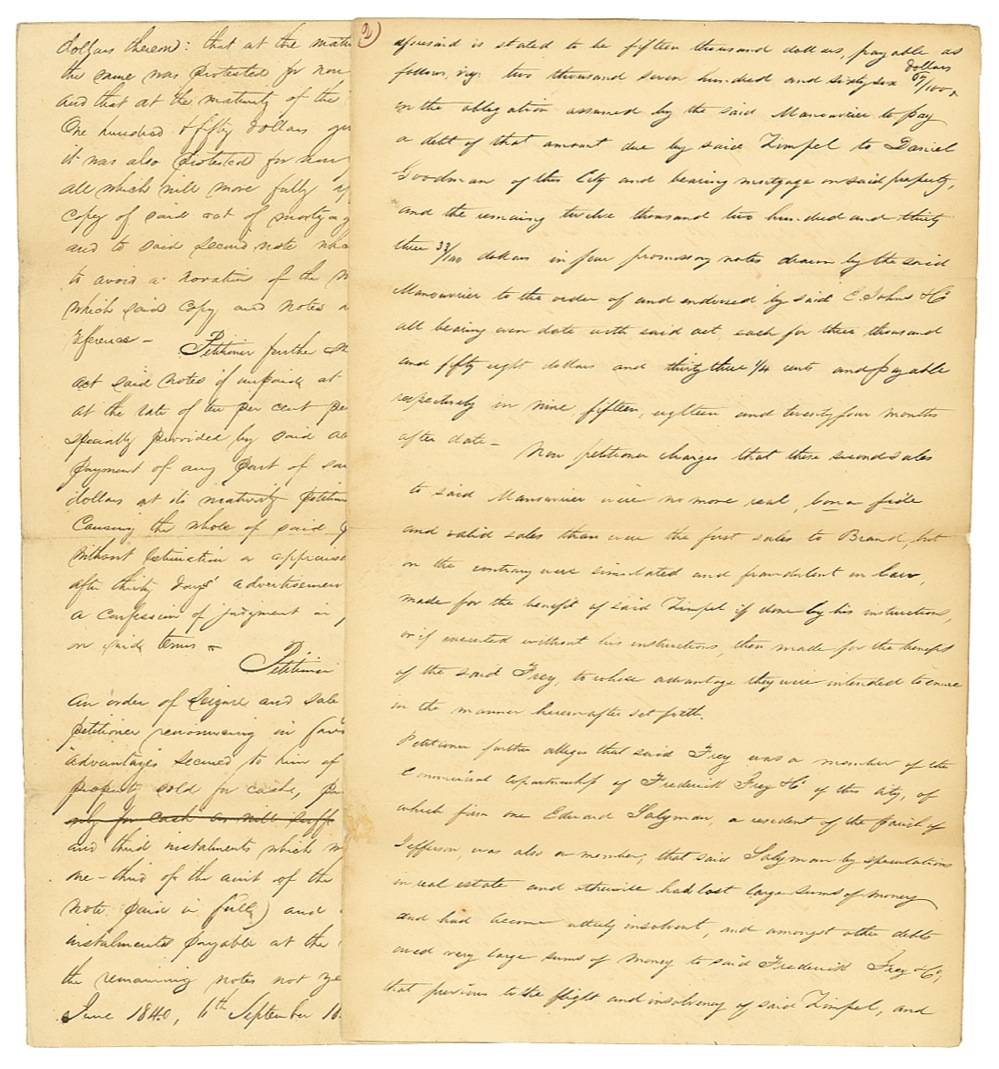 dollars thereon: that at the matu
the same was protested for non
and that at the maturity of the
One hundred & fifty dollars
it was also protested for non
all which will more fully
copy of said act of mortgag
and to said second note wh
to avoid a novation of the
which said copy and notes
reference — Petitioner further
act said notes if unpaid at
at the rate of ten per cent pe
specially provided by said ac
payment of any part of sai
dollars at its maturity petition
causing the whole of said
without estimation or appraise
after thirty days' advertisemen
a confession of judgment in
on said terms
Petitioner
an order of seizure and sale
petitioner renouncing in favo
advantages secured to him
property sold for cash,
only for cash as will suff
and third instalments which
one-third of the amt of the
note paid in full) and
instalments payable at the
the remaining notes not ye
June 1840, 6th September 18
2)
aforesaid is stated to be fifteen thousand dollars, payable as
follows, viz: two thousand seven hundred and sixty six dollars 67/100,
in the obligation assumed by the said Manouvrier to pay
a debt of that amount due by said Zimpel to Daniel
Goodman of this City and bearing mortgage on said property,
and the remaining twelve thousand two hundred and thirty
three 33/100 dollars in four promissory notes drawn by the said
Manouvrier to the order of and endorsed by said E. Johns & Co
all bearing even date with said act each for three thousand
and fifty eight dollars and thirty three 1/4 cents and payable
respectively in nine, fifteen, eighteen and twenty four months
after date — Now petitioner charges that these second sales
to said Manouvrier were no more real, bona fide
and valid sales than were the first sales to Brand, but
on the contrary were simulated and fraudulent in law,
made for the benefit of said Zimpel if done by his instructions,
or if executed without his instructions, then made for the benefit
of the said Frey, to whose advantage they were intended to enure
in the manner hereinafter set forth.
Petitioner further alleges that said Frey was a member of the
Commercial copartnership of Frederick Frey & Co of this city, of
which firm one Edward Salzman, a resident of the parish of
Jefferson, was also a member, that said Salzman by speculations
in real estate and otherwise had lost large sums of money
and had become utterly insolvent, and amongst other debts
owed very large sums of money to said Frederick Frey & Co,
that previous to the flight and insolvency of said Zimpel, and